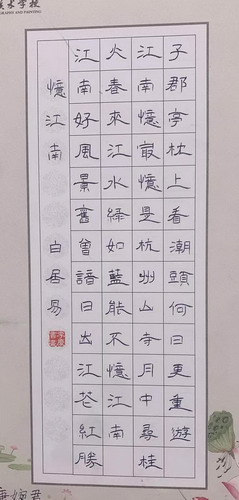 憶江南 白居易
江南好風景舊曾諳日出江花紅勝
火春來江水綠如藍能不憶江南
江南憶最憶是杭州山寺月中尋桂
子郡亭枕上看潮頭何日更重遊
术学校
AND PAINTING